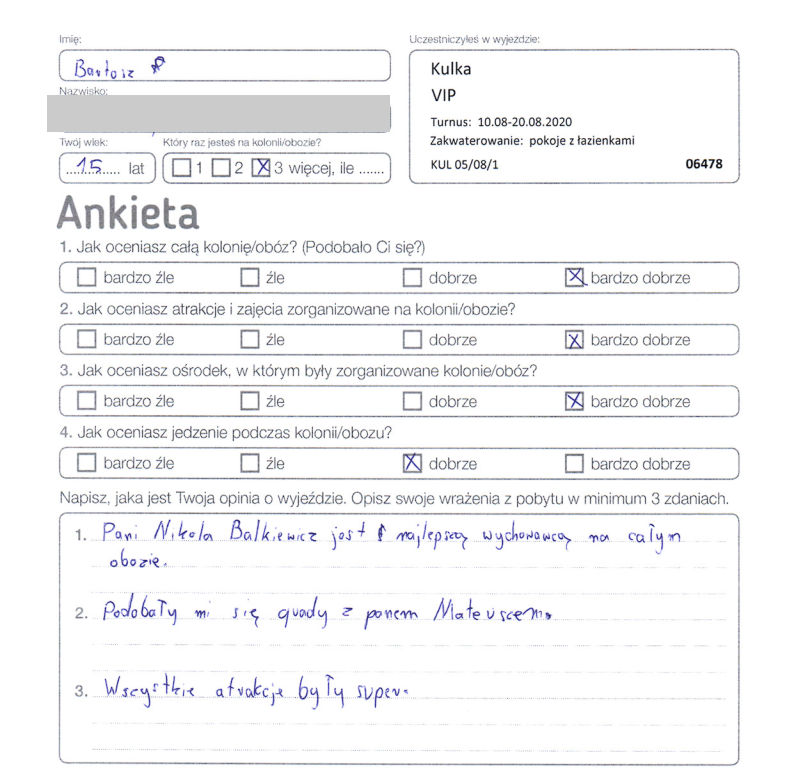 Imię:
Bartosz
Nazwisko:
Twój wiek:
Który raz jesteś na kolonii/obozie?
15 lat
1 2 3 więcej, ile .......
Uczestniczyłeś w wyjeździe:
Kulka
VIP
Turnus: 10.08-20.08.2020
Zakwaterowanie: pokoje z łazienkami
KUL 05/08/1 06478
Ankieta
1. Jak oceniasz całą kolonię/obóz? (Podobało Ci się?)
bardzo źle źle dobrze bardzo dobrze
2. Jak oceniasz atrakcje i zajęcia zorganizowane na kolonii/obozie?
bardzo źle źle dobrze bardzo dobrze
3. Jak oceniasz ośrodek, w którym były zorganizowane kolonie/obóz?
bardzo źle źle dobrze bardzo dobrze
4. Jak oceniasz jedzenie podczas kolonii/obozu?
bardzo źle źle dobrze bardzo dobrze
Napisz, jaka jest Twoja opinia o wyjeździe. Opisz swoje wrażenia z pobytu w minimum 3 zdaniach.
1. Pani Nikola Balkiewicz jest najlepszą wychowawcą na całym
obozie.
2. Podobały mi się quady z panem Mateuszem.
3. Wszystkie atrakcje były super.